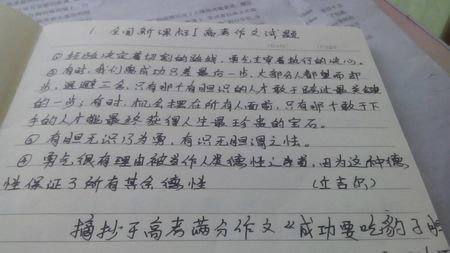 1 全国新课标I高考作文试题
① 经验决定着切割的路线，勇气主宰着执行的决心。
② 有时，我们离成功只差最后一步，大部分人都望而却
步，退避三舍，只有那个有胆识的人才敢于跨过最关键
的一步；有时，机会摆在所有人面前，只有那个敢于下
手的人才能最终获得人生最珍贵的宝石。
③ 有胆无识乃为勇，有识无胆谓之性。
④ 勇气很有理由被当作人类德性之首，因为这种德
性保证了所有其余德性 （丘吉尔）
摘抄于高考满分作文《成功要吃豹子胆